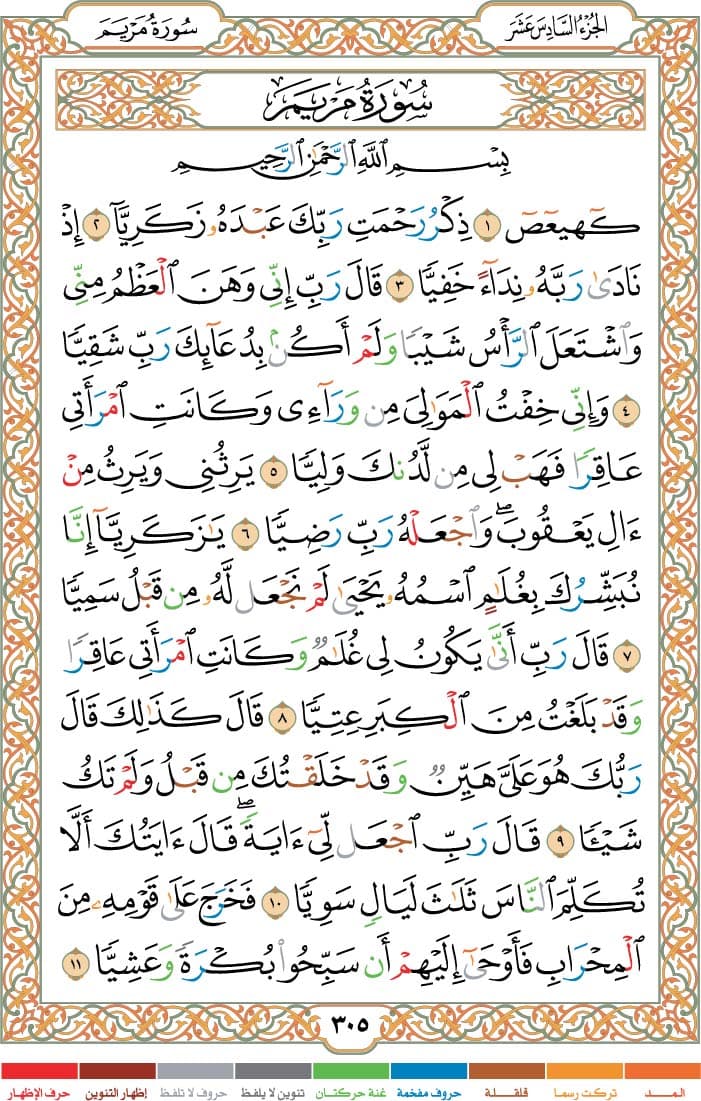 الجزء السادس عشر
سورة مريم
سورة مريم
بِسْمِ ٱللَّهِ ٱلرَّحْمَٰنِ ٱلرَّحِيمِ
كٓهيعٓصٓ ١ ذِكْرُ رَحْمَتِ رَبِّكَ عَبْدَهُۥ زَكَرِيَّآ ٢ إِذْ
نَادَىٰ رَبَّهُۥ نِدَآءً خَفِيًّا ٣ قَالَ رَبِّ إِنِّى وَهَنَ ٱلْعَظْمُ مِنِّى
وَٱشْتَعَلَ ٱلرَّأْسُ شَيْبًا وَلَمْ أَكُنۢ بِدُعَآئِكَ رَبِّ شَقِيًّا
٤ وَإِنِّى خِفْتُ ٱلْمَوَٰلِىَ مِن وَرَآءِى وَكَانَتِ ٱمْرَأَتِى
عَاقِرًا فَهَبْ لِى مِن لَّدُنكَ وَلِيًّا ٥ يَرِثُنِى وَيَرِثُ مِنْ
ءَالِ يَعْقُوبَ ۖ وَٱجْعَلْهُ رَبِّ رَضِيًّا ٦ يَٰزَكَرِيَّآ إِنَّا
نُبَشِّرُكَ بِغُلَٰمٍ ٱسْمُهُۥ يَحْيَىٰ لَمْ نَجْعَل لَّهُۥ مِن قَبْلُ سَمِيًّا
٧ قَالَ رَبِّ أَنَّىٰ يَكُونُ لِى غُلَٰمٌ وَكَانَتِ ٱمْرَأَتِى عَاقِرًا
وَقَدْ بَلَغْتُ مِنَ ٱلْكِبَرِ عِتِيًّا ٨ قَالَ كَذَٰلِكَ قَالَ
رَبُّكَ هُوَ عَلَىَّ هَيِّنٌ وَقَدْ خَلَقْتُكَ مِن قَبْلُ وَلَمْ تَكُ
شَيْـًٔا ٩ قَالَ رَبِّ ٱجْعَل لِّىٓ ءَايَةً ۚ قَالَ ءَايَتُكَ أَلَّا
تُكَلِّمَ ٱلنَّاسَ ثَلَٰثَ لَيَالٍ سَوِيًّا ١٠ فَخَرَجَ عَلَىٰ قَوْمِهِۦ مِنَ
ٱلْمِحْرَابِ فَأَوْحَىٰٓ إِلَيْهِمْ أَن سَبِّحُوا۟ بُكْرَةً وَعَشِيًّا ١١
٣٠٥
المـد تركت رسما قلقلة حروف مفخمة غنة حركتان تنوين لا يلفظ حروف لا تلفظ إظهار التنوين حرف الإظهار